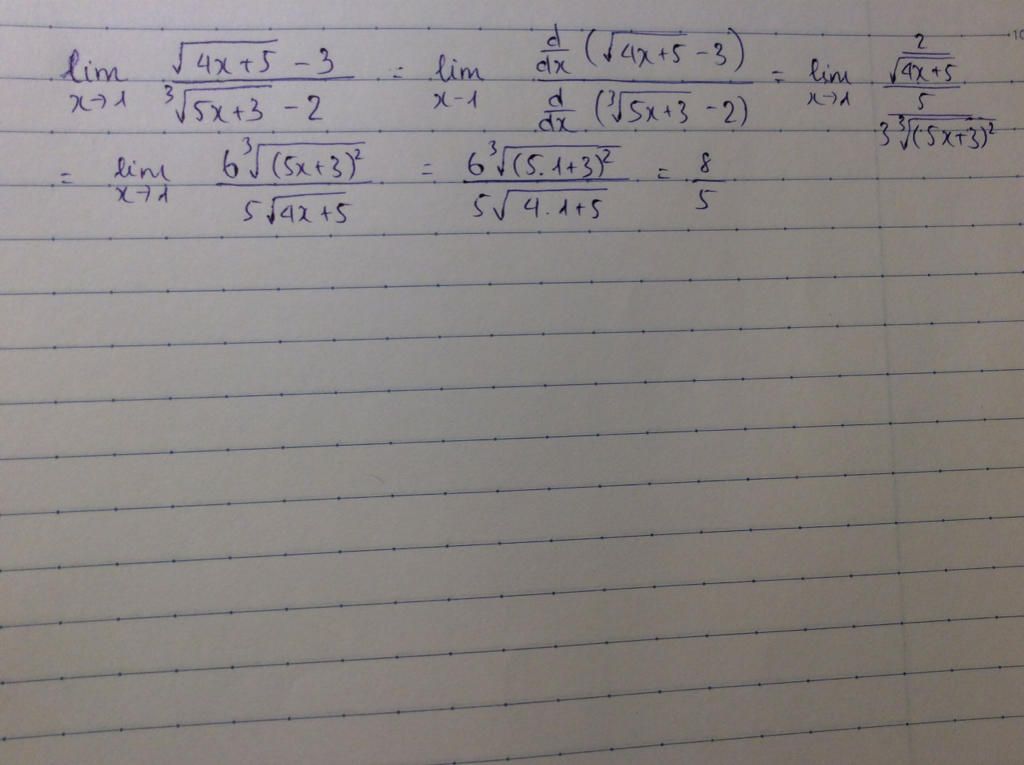 lim x→1 (√(4x+5) - 3)/(³√(5x+3) - 2) = lim x-1 (d/dx (√(4x+5) - 3))/(d/dx (³√(5x+3) - 2)) = lim x→1 (2/√(4x+5))/(5/(3 ³√((5x+3)²)))
= lim x→1 (6 ³√((5x+3)²))/(5√(4x+5)) = (6 ³√((5.1+3)²))/(5√(4.1+5)) = 8/5